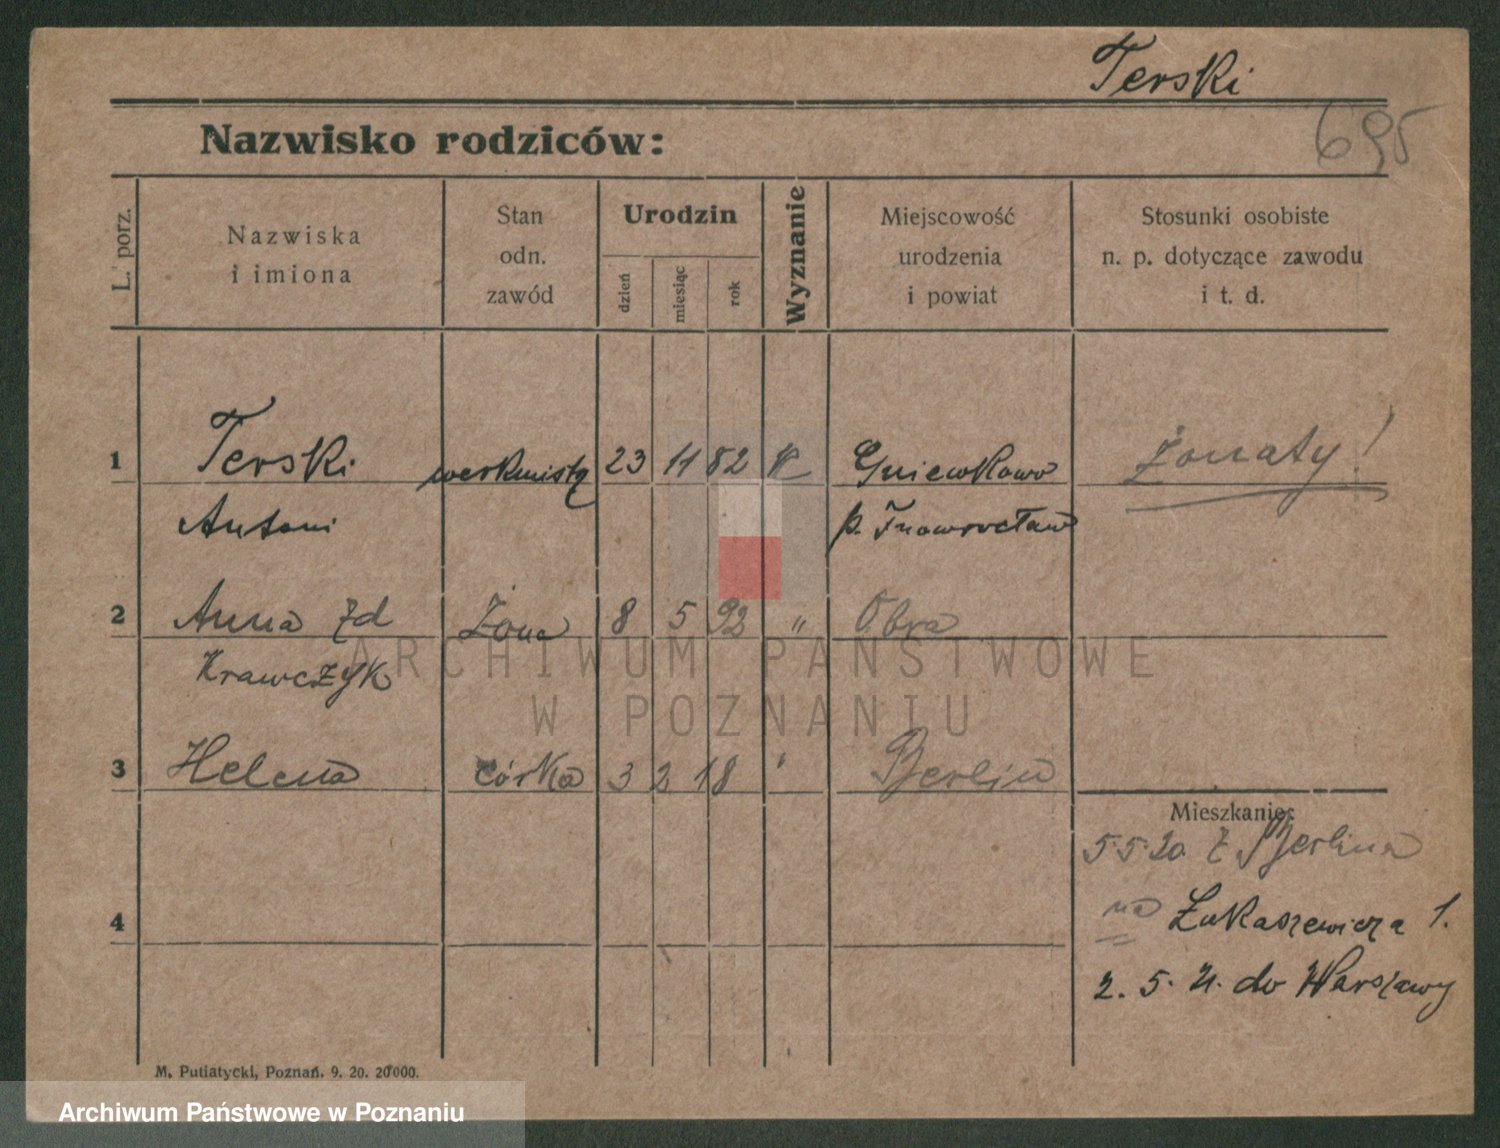 Terski
695
Nazwisko rodziców:
L. porz.
Nazwiska
i imiona
Stan
odn.
zawód
Urodzin
dzień
miesiąc
rok
Wyznanie
Miejscowość
urodzenia
i powiat
Stosunki osobiste
n. p. dotyczące zawodu
i t. d.
1 Terski werkmistrz 23 11 82 K Gniewkowo żonaty!
Antoni p. Inowrocław
2 Anna zd żona 8 5 92 " Obra
Krawczyk
3 Helena córka 3 2 18 " Berlin
Mieszkanie:
5.5.20. z Berlina
na Łukaszewicza 1.
4
2. 5. 21. do Warszawy
M. Putiatycki, Poznań. 9. 20. 20000.
ARCHIWUM PAŃSTWOWE
W POZNANIU
Archiwum Państwowe w Poznaniu